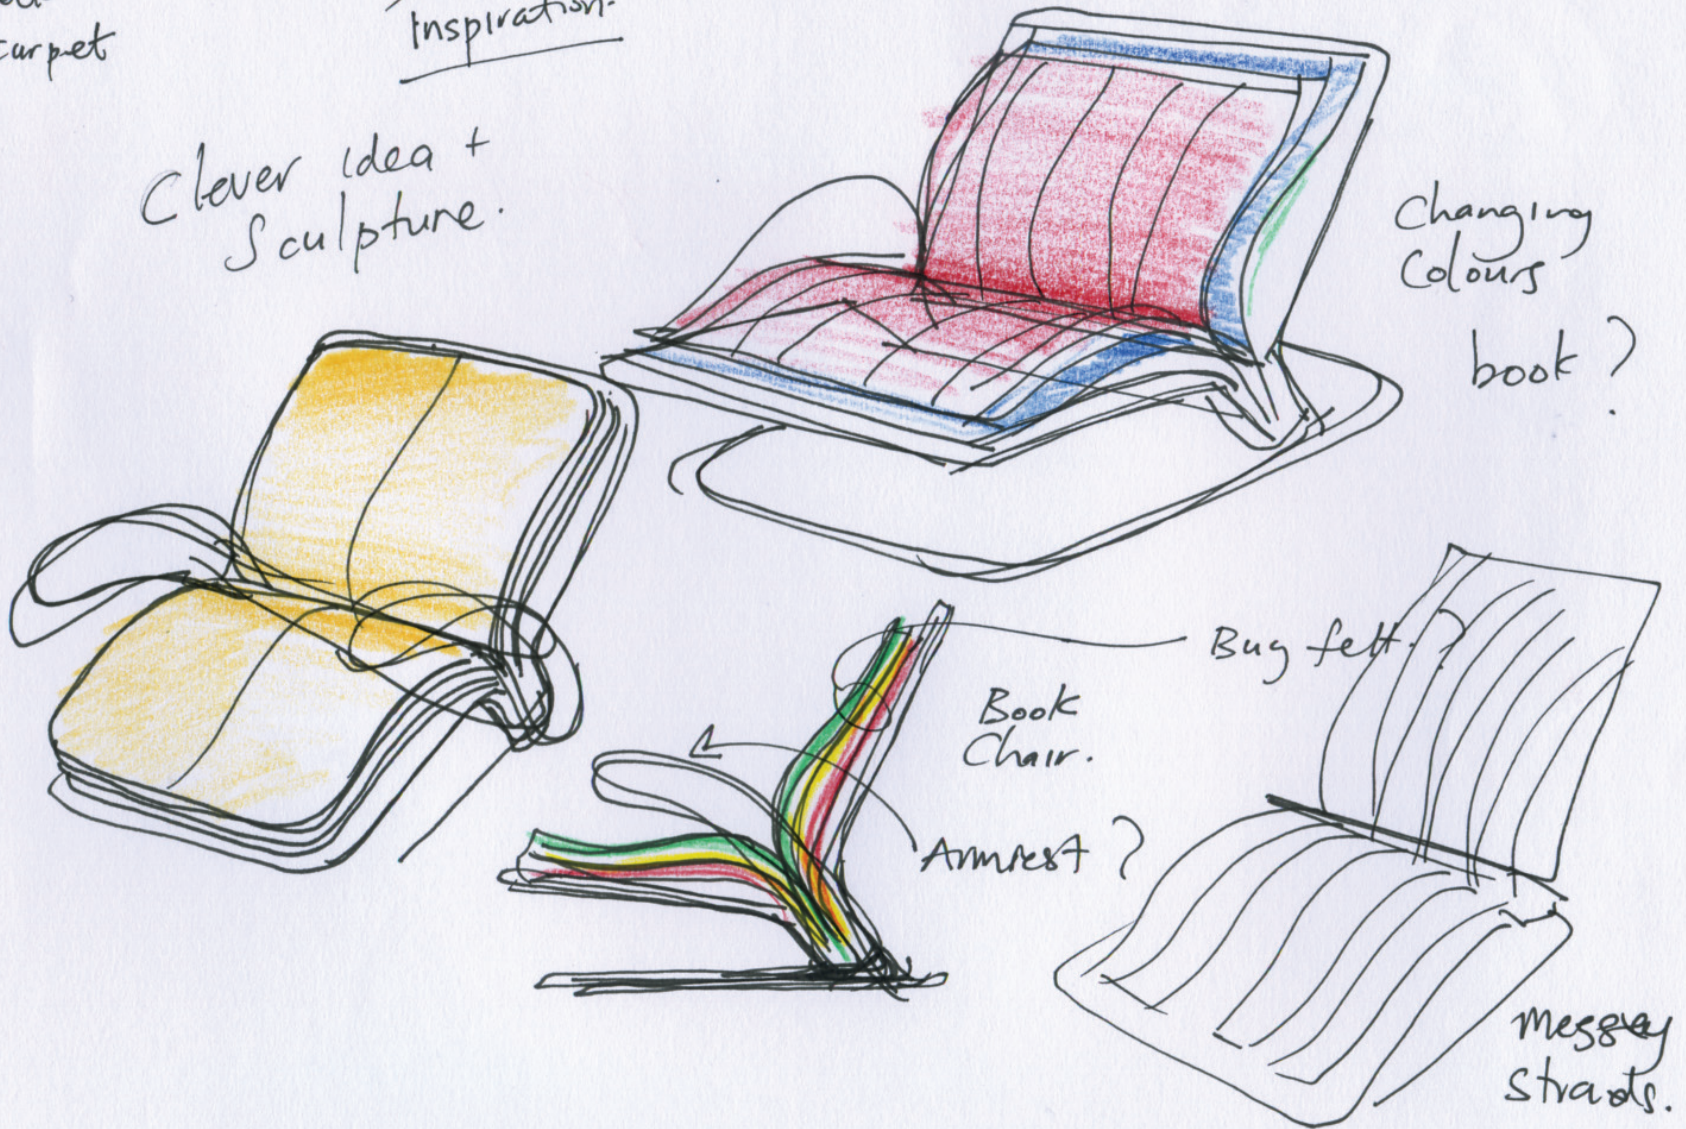 carpet
Inspiration.
Clever idea +
Sculpture.
Changing
Colours
book ?
Bug felt. ?
Book
Chair.
Armrest ?
Messy
Strands.